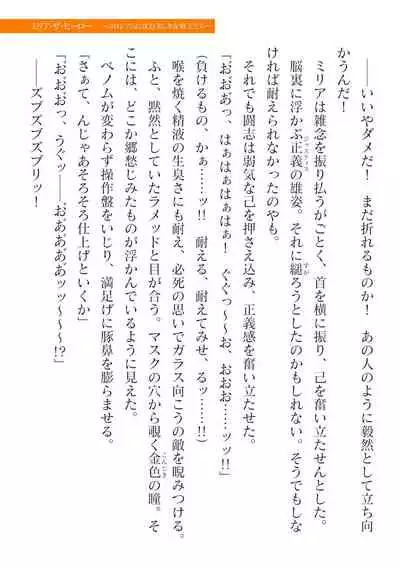 ミリア・ザ・ヒーロー
――いいやダメだ！　まだ折れるものか！　あの人のように毅然として立ち向
かうんだ！
ミリアは雑念を振り払うがごとく、首を横に振り、己を奮い立たせんとした。
脳裏に浮かぶ正義の雄姿。それに縋ろうとしたのかもしれない。そうでもしな
ければ耐えられなかったのやも。
それでも闘志は弱気な己を押さえ込み、正義感を奮い立たせた。
『おおあっ、はぁはぁはぁはぁ！　ぐぐっ～～お、おおお……ッッ!!』
(負けるもの、かぁ……ッ!!　耐える、耐えてみせ、るッ……!!)
喉を焼く精液の生臭さにも耐え、必死の思いでガラス向こうの敵を睨みつける。
ふと、黙然としていたラメッドと目が合う。マスクの穴から覗く金色の瞳。そ
こには、どこか郷愁じみたものが浮かんでいるように見えた。
ベノムが変わらず操作盤をいじり、満足げに豚鼻を膨らませる。
「さぁて、んじゃあそろそろ仕上げといくか」
『おおおっ、うぐッ――おあああああッッ～～～!?』
――ズブズブズブリッ！